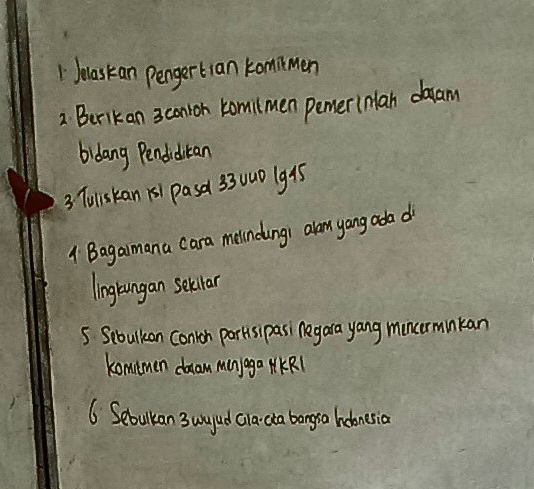 1. Jelaskan Pengertian Komitmen
2. Berikan 3 contoh komitmen pemerintah dalam
bidang Pendidikan
3. Tuliskan isi pasal 33 UUD 1945
4. Bagaimana cara melindungi alam yang ada di
lingkungan sekitar
5. Sebutkan contoh partisipasi negara yang mencerminkan
komitmen dalam menjaga NKRI
6. Sebutkan 3 wujud cita-cita bangsa Indonesia